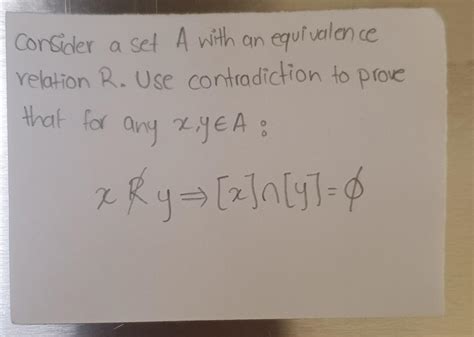 Consider a set A with an equivalence
relation R. Use contradiction to prove
that for any x,y∈A :
x R̸ y ⇒ [x]∩[y]=∅